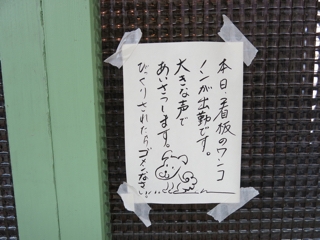 本日、看板のワンコ
ノンが出勤です。
大きな声で
あいさつします。
びっくりされたらゴメンなさい!